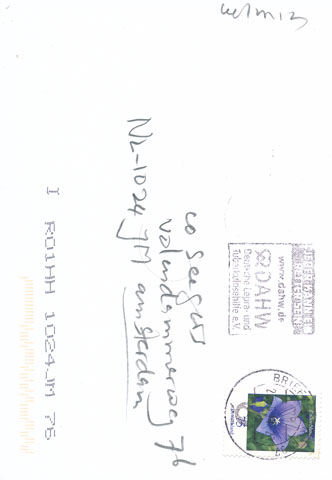 co Seegers
Volendammerweg 76
NL-1024 JM amsterdam
www.dahw.de
DAHW
Deutsche Lepra- und
Tuberkulosehilfe e.V.
BRIE
I R01HH 1024JM 76